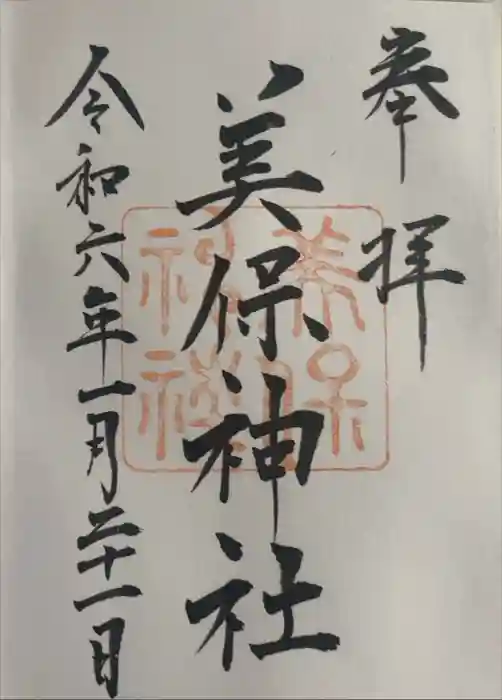 奉拝
美保神社
令和六年一月二十一日